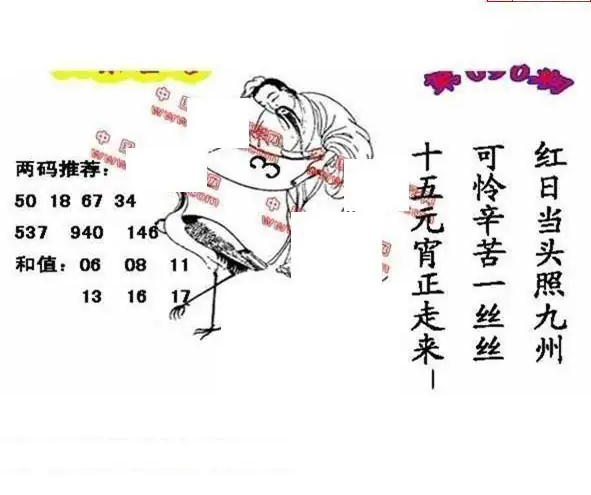 两码推荐：
50 18 67 34
537 940 146
和值：06 08 11
13 16 17
3
红日当头照九州
可怜辛苦一丝丝
十五元宵正走来